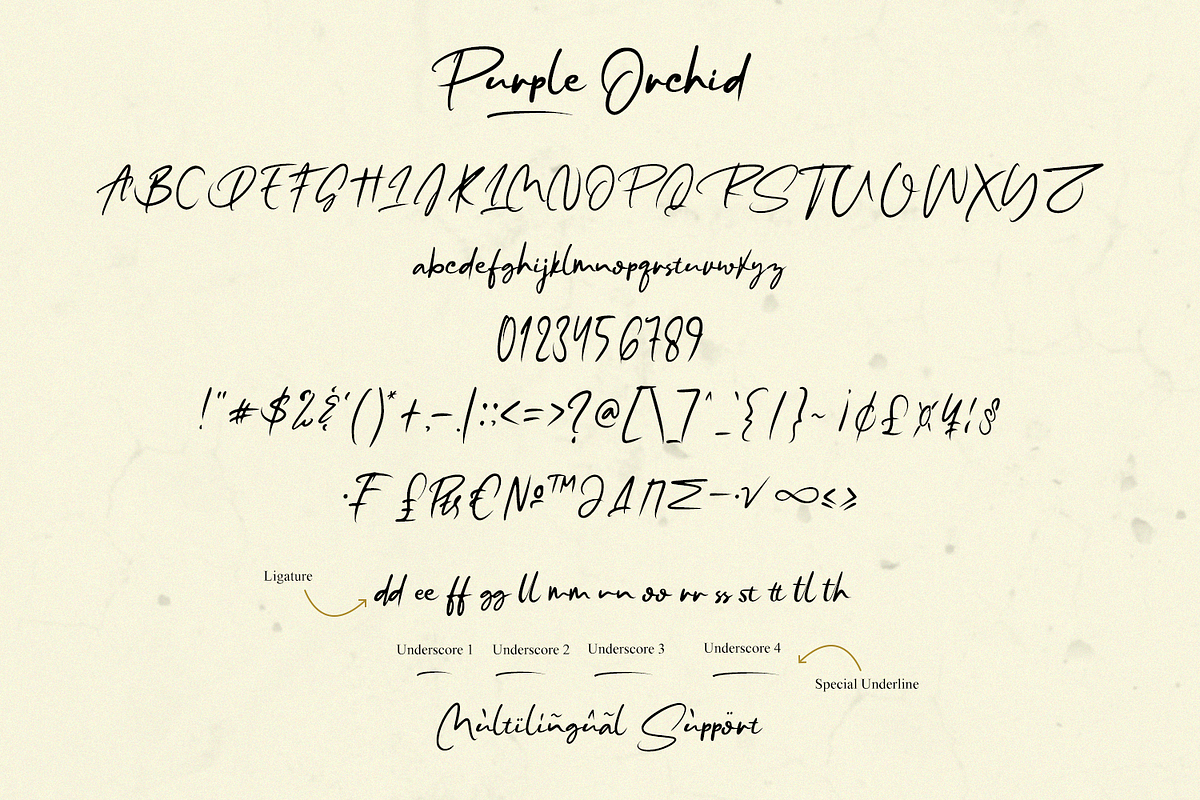 Purple Orchid
ABCDEFGHIJKLMNOPQRSTUVWXYZ
abcdefghijklmnopqrstuvwxyz
0123456789
!"#$%&'()*+,-./:;<=>?@[\]^_`{|}~¡¢£¤¥¦§
·₣₤₧€№™∂∆∏∑−∙√∞≤≥
Ligature
dd ee ff gg ll mm nn oo rr ss st tt tl th
Underscore 1 Underscore 2 Underscore 3 Underscore 4
Special Underline
Mùltilíñgûãl Sùppört